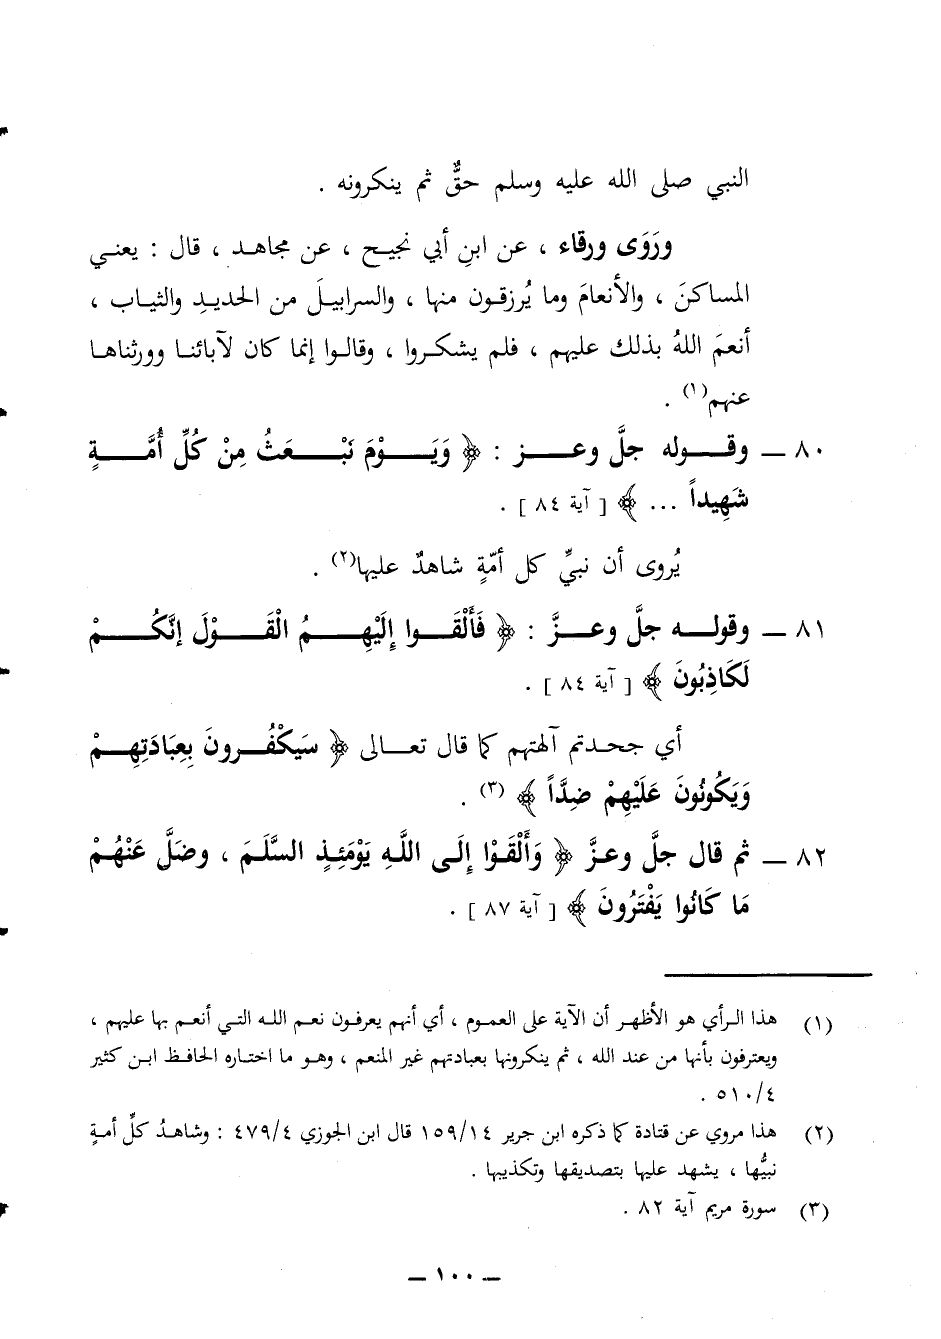 النبي صلى الله عليه وسلم حقٌّ ثم ينكرونه .
ورَوَى ورقاء ، عن ابنِ أبي نجيح ، عن مجاهد ، قال : يعني
المساكنَ ، والأنعامَ وما يُرزقون منها ، والسرابيلَ من الحديدِ والثياب ،
أنعمَ اللهُ بذلك عليهم ، فلم يشكروا ، وقالوا إنما كان لآبائنا وورثناها
عنهم(١) .
٨٠ ــ وقوله جلَّ وعز : ﴿ وَيَوْمَ نَبْعَثُ مِنْ كُلِّ أُمَّةٍ
شَهِيداً ... ﴾ [ آية ٨٤ ] .
يُروى أن نبيِّ كل أمّةٍ شاهدٌ عليها(٢) .
٨١ ــ وقوله جلَّ وعزَّ : ﴿ فَأَلْقَوا إِلَيْهِمُ الْقَوْلَ إنَّكُمْ
لَكَاذِبُونَ ﴾ [ آية ٨٤ ] .
أي جحدتم آلهتهم كما قال تعالى ﴿ سَيَكْفُرونَ بِعِبَادَتِهِمْ
وَيَكُونُونَ عَلَيْهِمْ ضِدَّاً ﴾ (٣) .
٨٢ ــ ثم قال جلَّ وعزَّ ﴿ وَأَلْقَوْا إِلَى اللَّهِ يَوْمَئِذٍ السَّلَمَ ، وضَلَّ عَنْهُمْ
مَا كَانُوا يَفْتَرُونَ ﴾ [ آية ٨٧ ] .
(١) هذا الرأي هو الأظهر أن الآية على العموم ، أي أنهم يعرفون نعم الله التي أنعم بها عليهم ،
ويعترفون بأنها من عند الله ، ثم ينكرونها بعبادتهم غير المنعم ، وهو ما اختاره الحافظ ابن كثير
٥١٠/٤ .
(٢) هذا مروي عن قتادة كما ذكره ابن جرير ١٥٩/١٤ قال ابن الجوزي ٤٧٩/٤ : وشاهدُ كلِّ أمةٍ
نبيُّها ، يشهد عليها بتصديقها وتكذيبها .
(٣) سورة مريم آية ٨٢ .
ــ ١٠٠ ــ